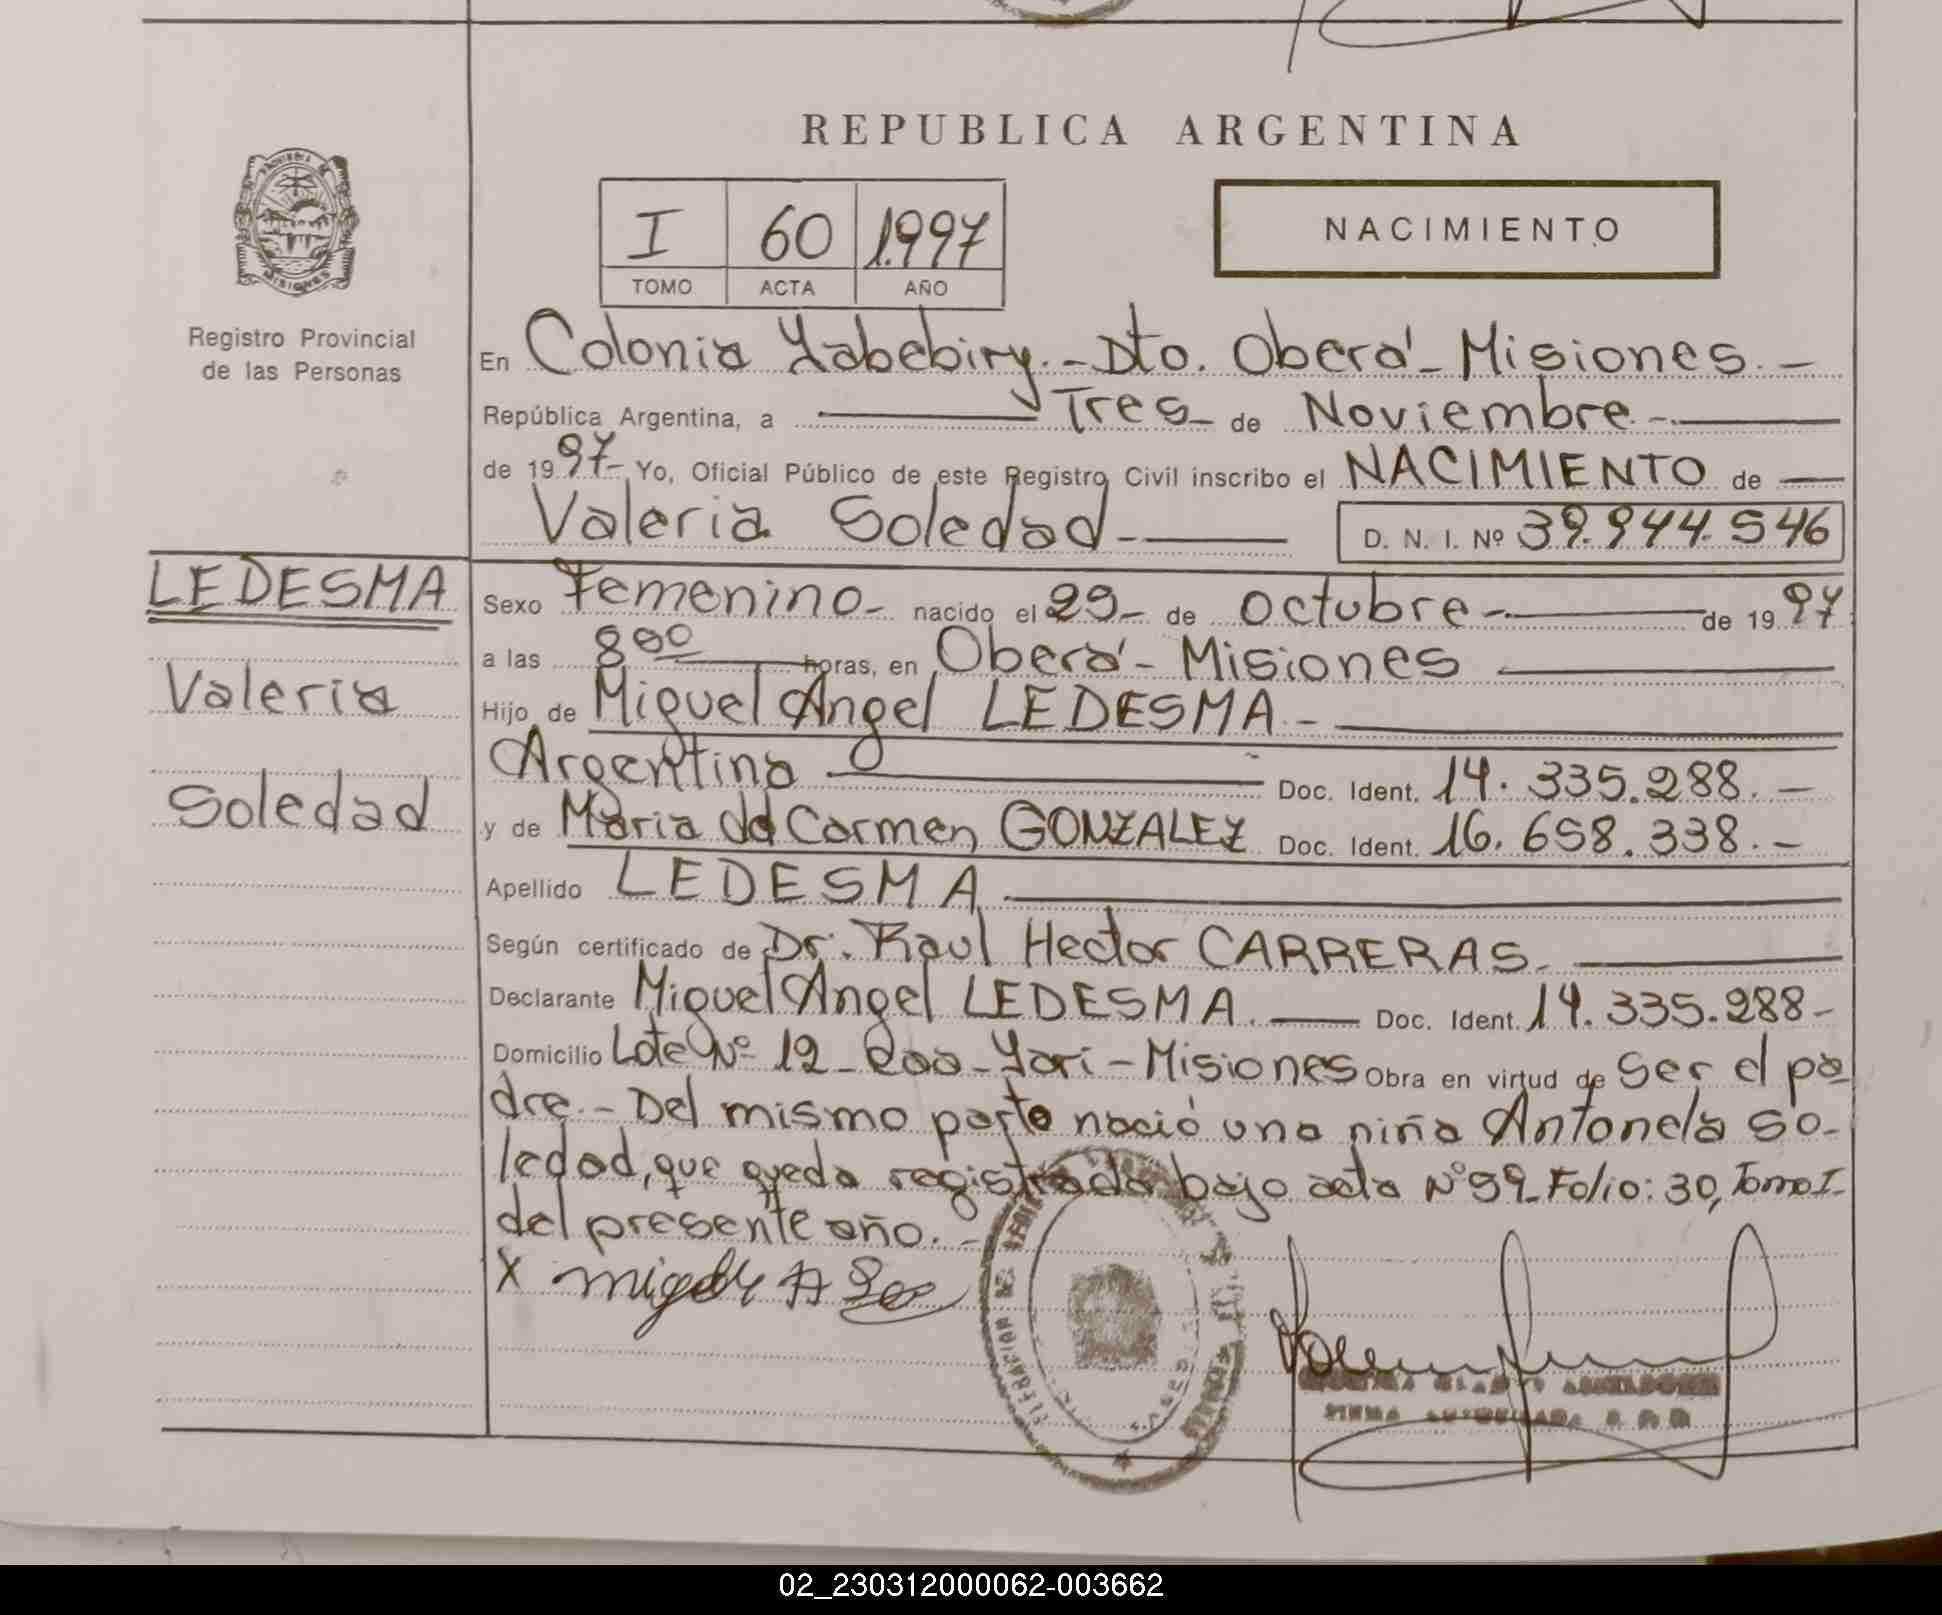 REPUBLICA ARGENTINA
I 60 1.997
TOMO ACTA AÑO
NACIMIENTO
MISIONES
Registro Provincial
de las Personas
En Colonia Yabebiry.- Dto. Oberá - Misiones. -
República Argentina, a Tres - de Noviembre -
de 1997- Yo, Oficial Público de este Registro Civil inscribo el NACIMIENTO de
Valeria Soledad - D. N. I. Nº 39.944.546
LEDESMA
Valeria
Soledad
Sexo Femenino - nacido el 29 - de Octubre - de 1997
a las 8 00 horas, en Oberá - Misiones
Hijo de Miguel Angel LEDESMA -
Argentina Doc. Ident. 14.335.288. -
y de Maria del Carmen GONZALEZ Doc. Ident. 16.658.338. -
Apellido LEDESMA
Según certificado de Dr. Raul Hector CARRERAS.
Declarante Miguel Angel LEDESMA. Doc. Ident. 14.335.288 -
Domicilio Lote Nº 12 - Yari - Misiones Obra en virtud de Ser el pa
dre. - Del mismo parto nació una niña Antonela So-
ledad, que queda registrada bajo acta Nº 59 - Folio: 30, Tomo I -
del presente año. -
X
02_230312000062-003662